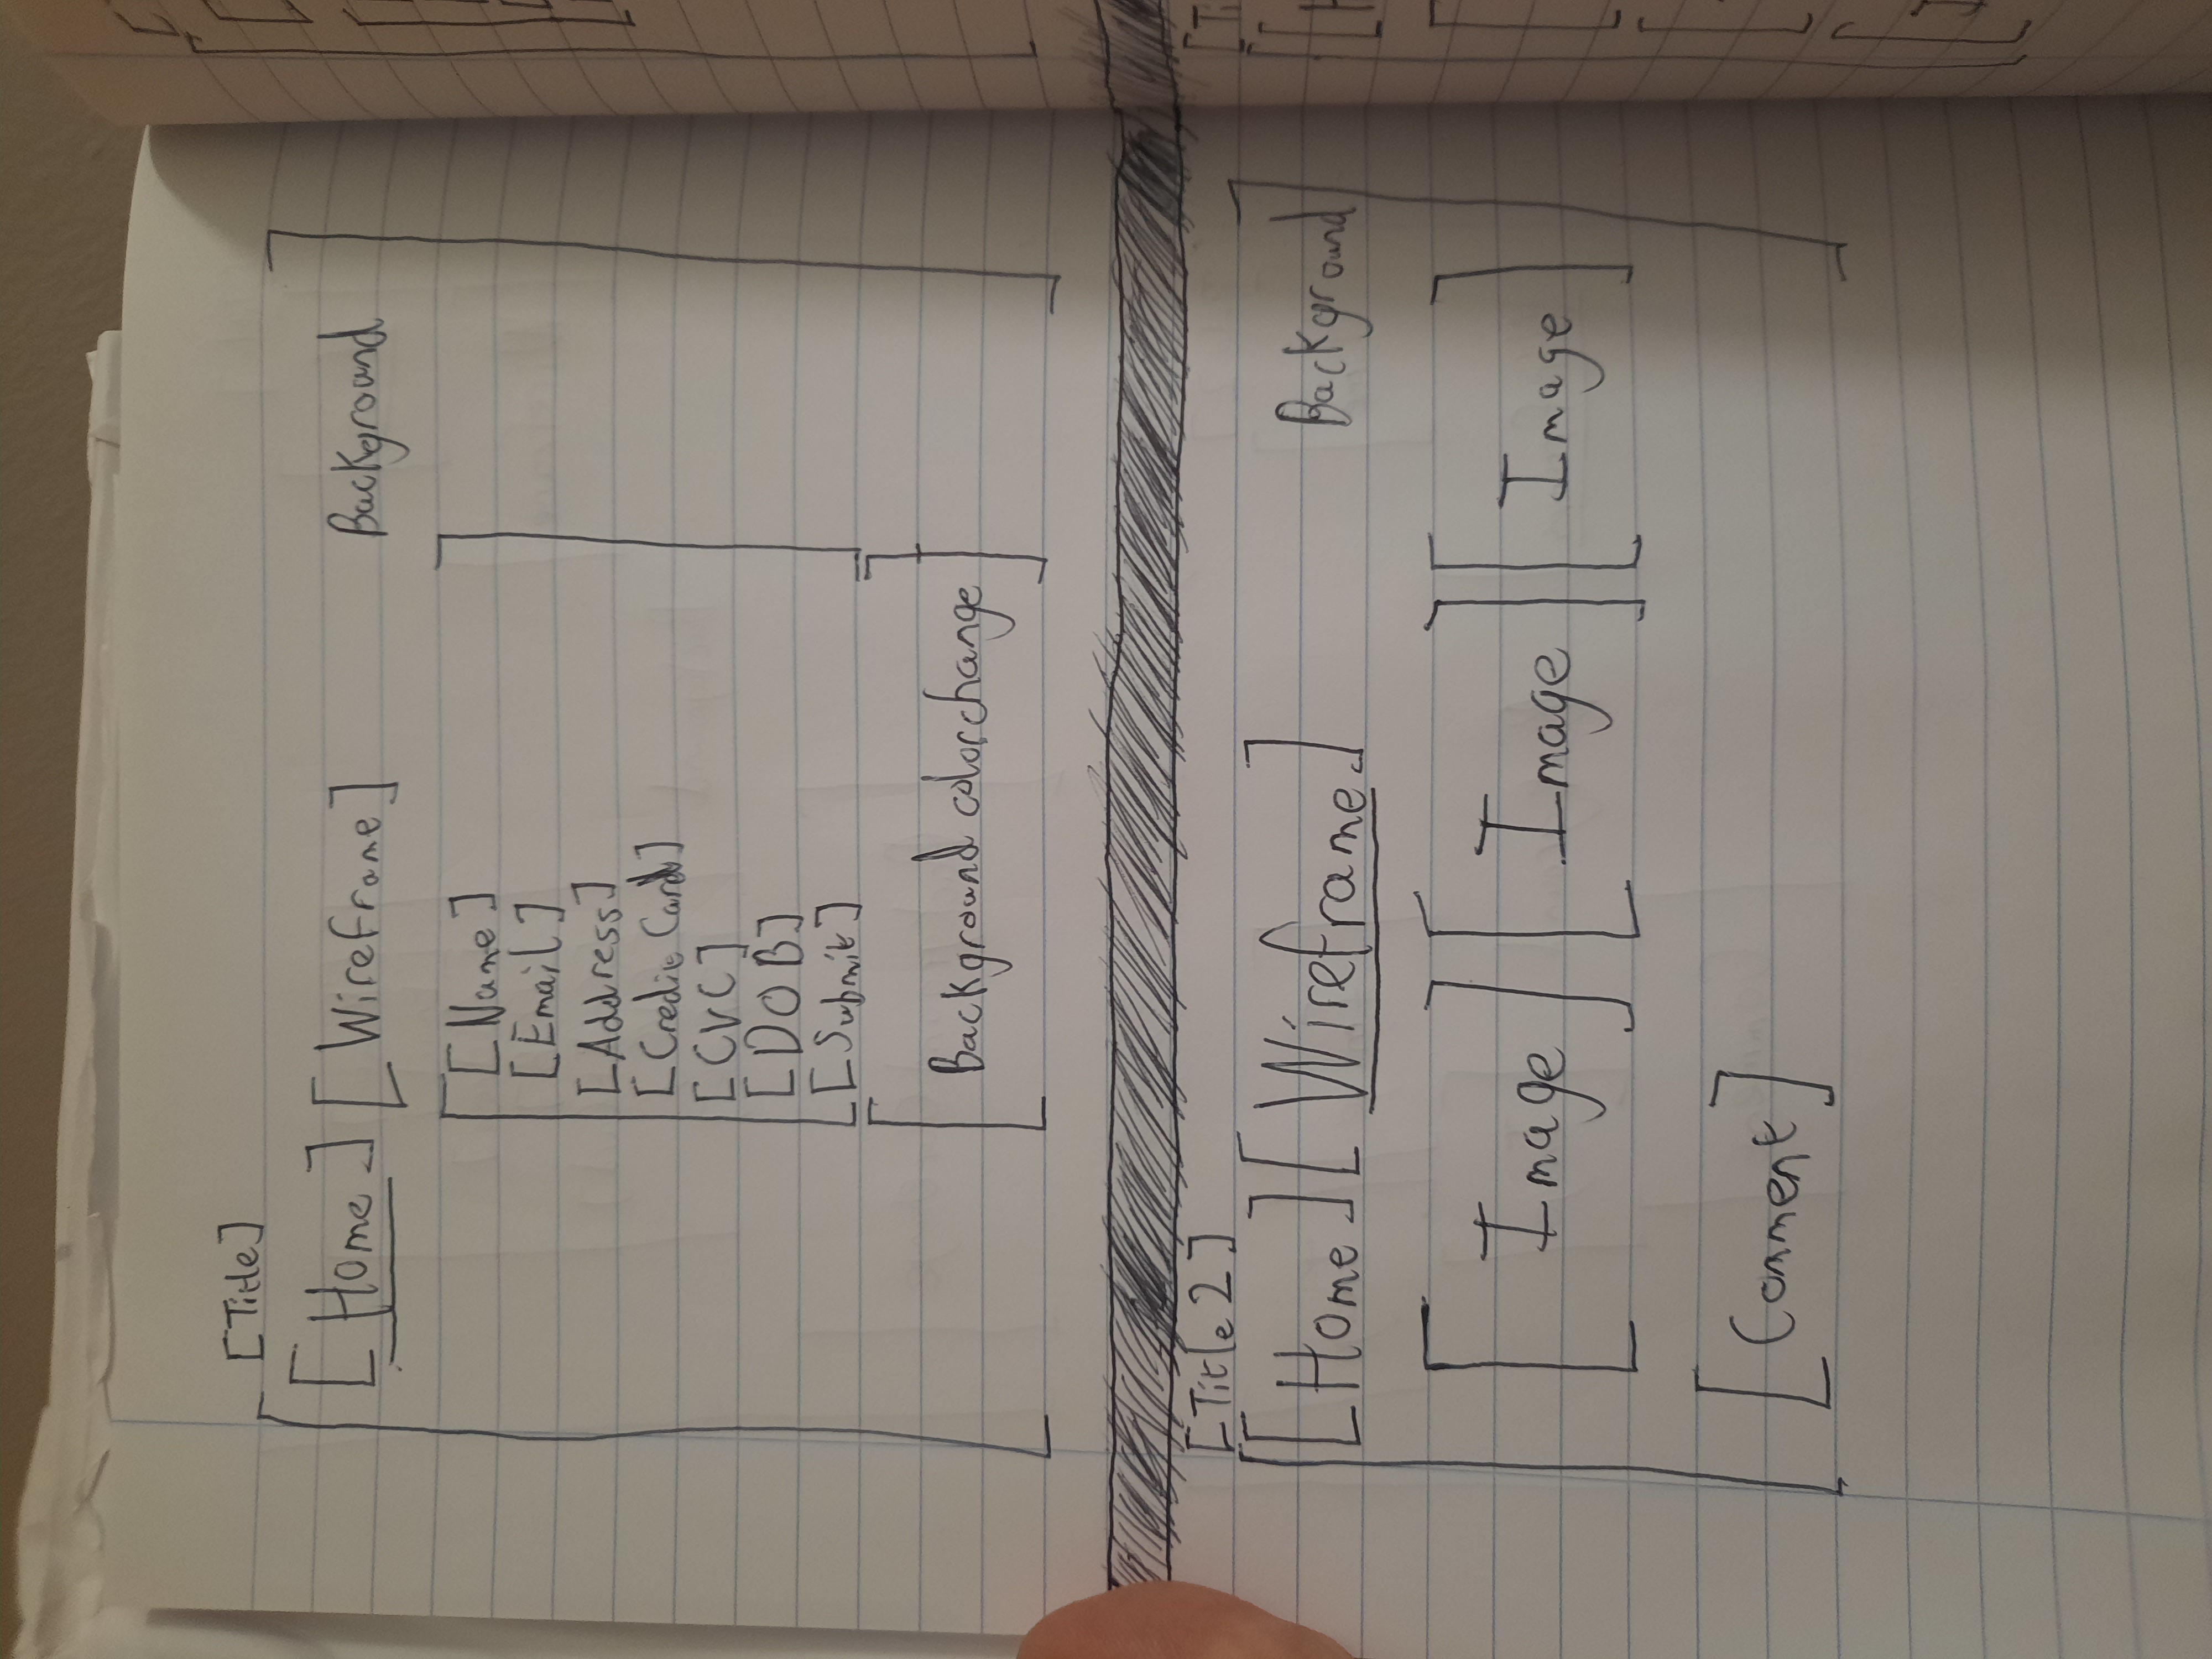 [Title]
[Home] [Wireframe] Background
[Name]
[Email]
[Address]
[Credit Card]
[CVC]
[DOB]
[Submit]
[Background colorchange]
[Title 2]
[Home] [Wireframe] Background
[Image] [Image] [Image]
[Comment]